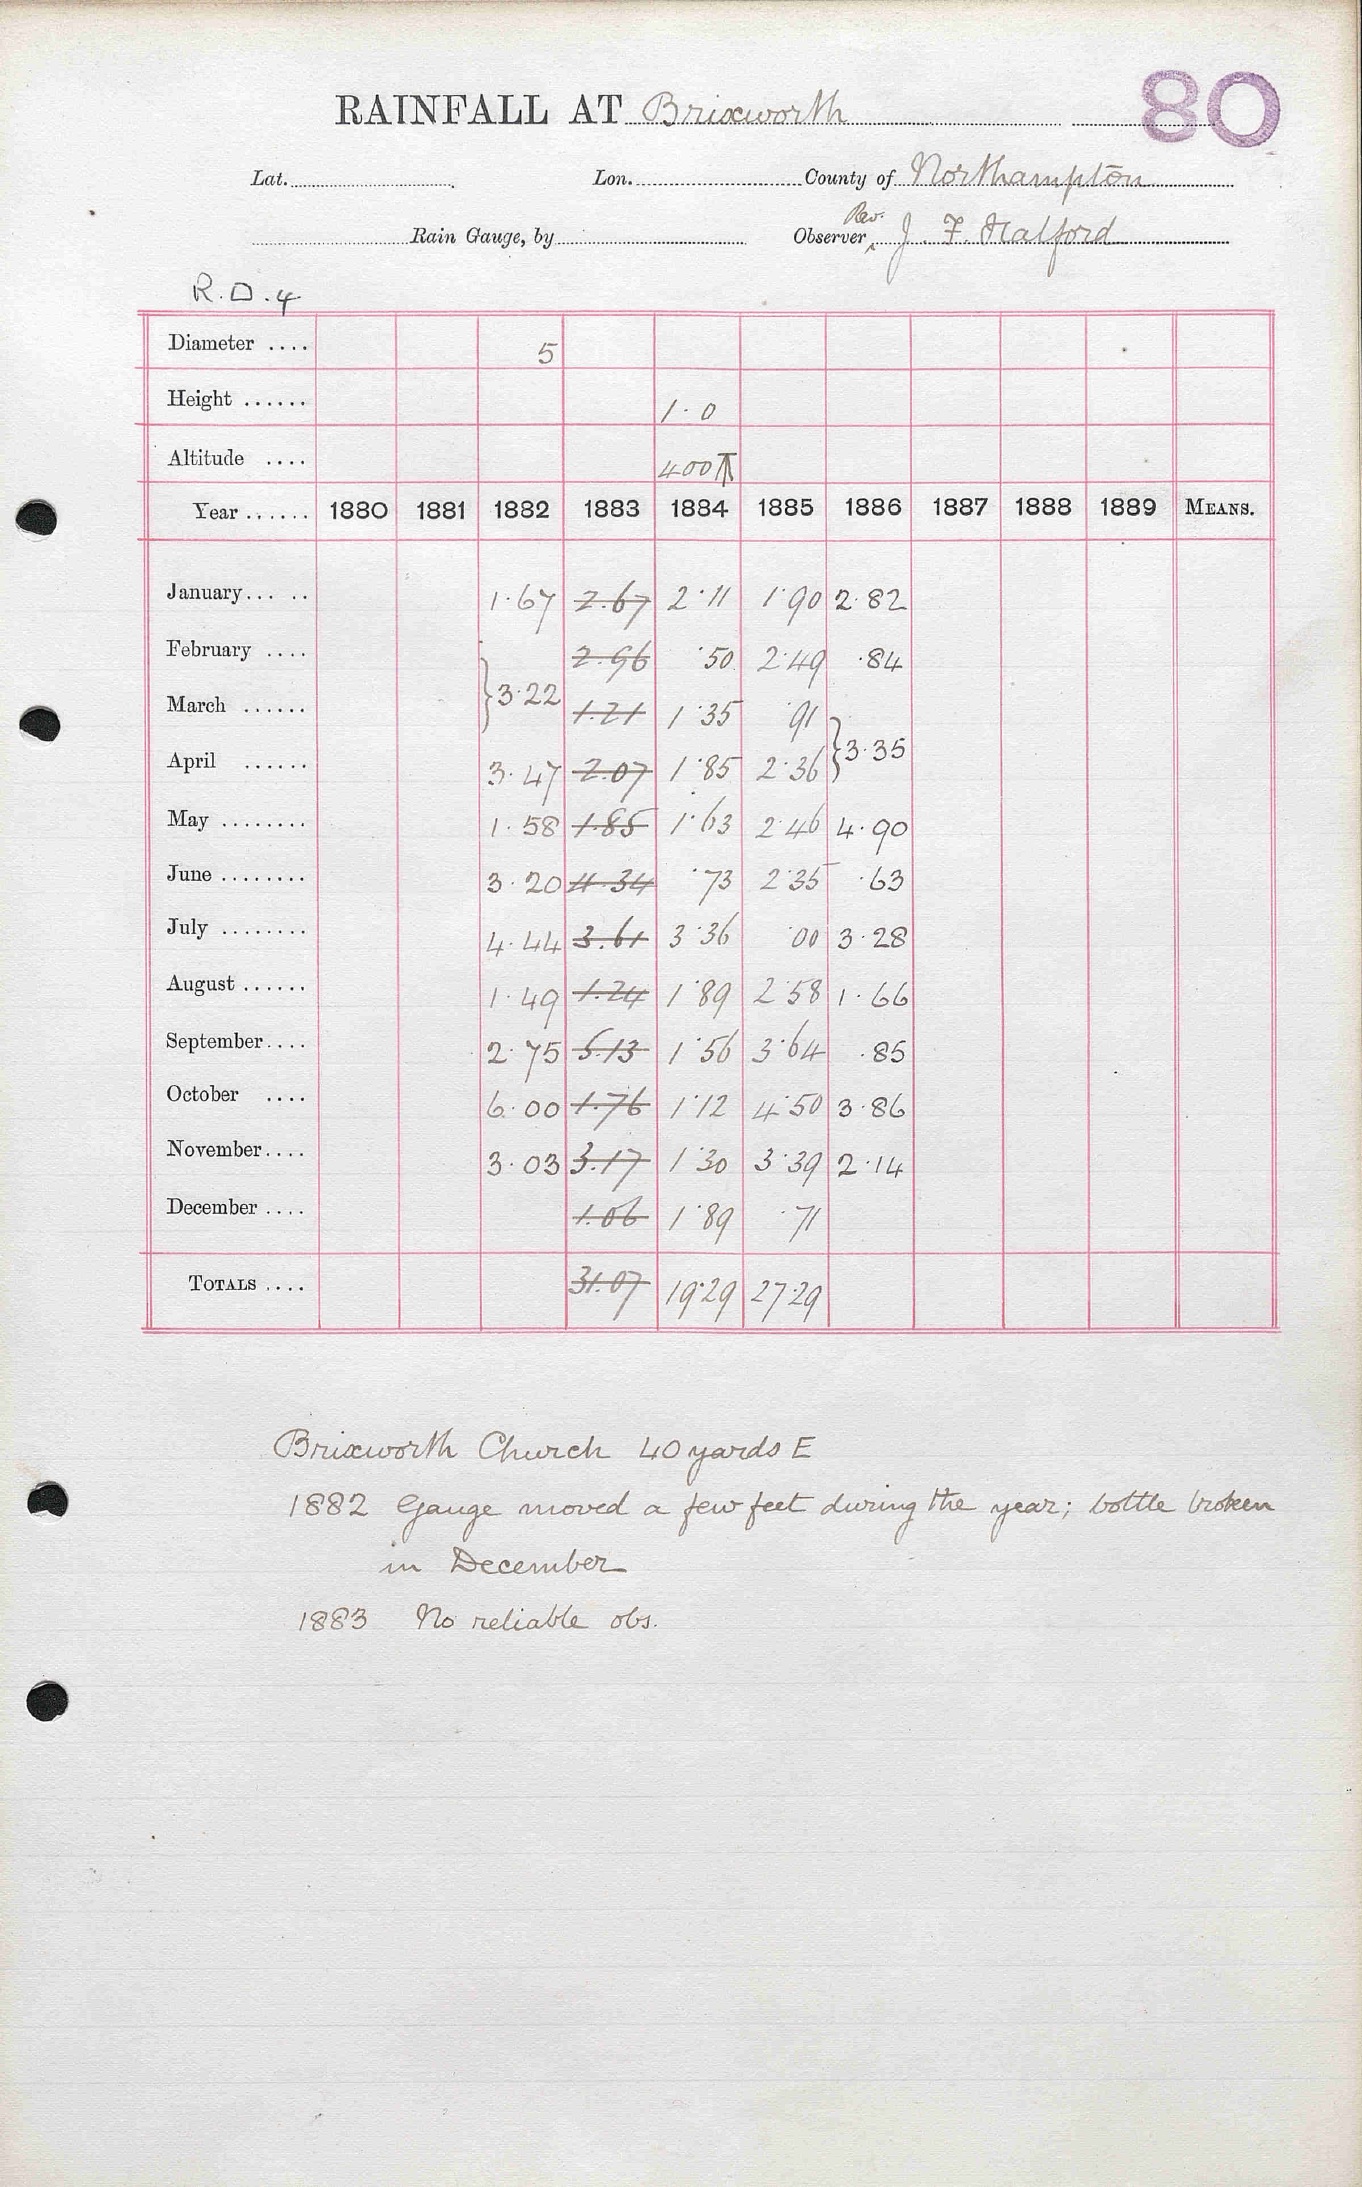 80
RAINFALL AT Brixworth
Lat. Lon. County of Northampton
Rev.
Rain Gauge, by Observer J. F. Halford
R.D.4
Diameter .... 5
Height ...... 1.0
Altitude .... 400
Year ...... 1880 1881 1882 1883 1884 1885 1886 1887 1888 1889 MEANS.
January... .. 1.67 2.67 2.11 1.90 2.82
February .... 2.96 .50 2.49 .84
} 3.22
March ...... 1.21 1.35 .91
} 3.35
April ...... 3.47 2.07 1.85 2.36
May ........ 1.58 1.85 1.63 2.46 4.90
June ........ 3.20 4.34 .73 2.35 .63
July ........ 4.44 3.61 3.36 .00 3.28
August ...... 1.49 1.24 1.89 2.58 1.66
September.... 2.75 5.13 1.56 3.64 .85
October .... 6.00 1.76 1.12 4.50 3.86
November.... 3.03 3.17 1.30 3.39 2.14
December .... 1.06 1.89 .71
TOTALS .... 31.07 19.29 27.29
Brixworth Church 40 yards E
1882 Gauge moved a few feet during the year; bottle broken
in December
1883 No reliable obs.